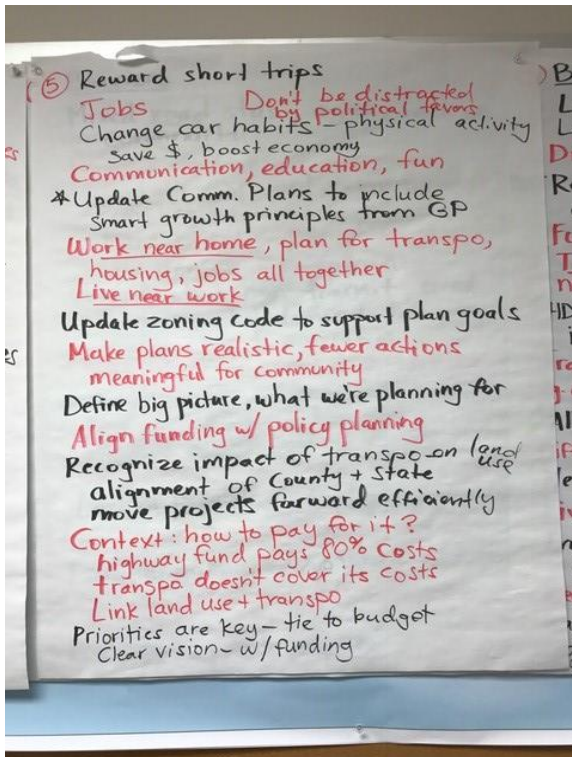 ⑤ Reward short trips
Jobs Don't be distracted
by political favors
Change car habits – physical activity
save $, boost economy
Communication, education, fun
* Update Comm. Plans to include
smart growth principles from GP
Work near home, plan for transpo,
housing, jobs all together
Live near work
Update zoning code to support plan goals
Make plans realistic, fewer actions
meaningful for community
Define big picture, what we're planning for
Align funding w/ policy planning
Recognize impact of transpo on land
use
alignment of County + State
move projects forward efficiently
Context: how to pay for it?
highway fund pays 80% costs
transpo doesn't cover its costs
Link land use + transpo
Priorities are key – tie to budget
Clear vision – w/ funding